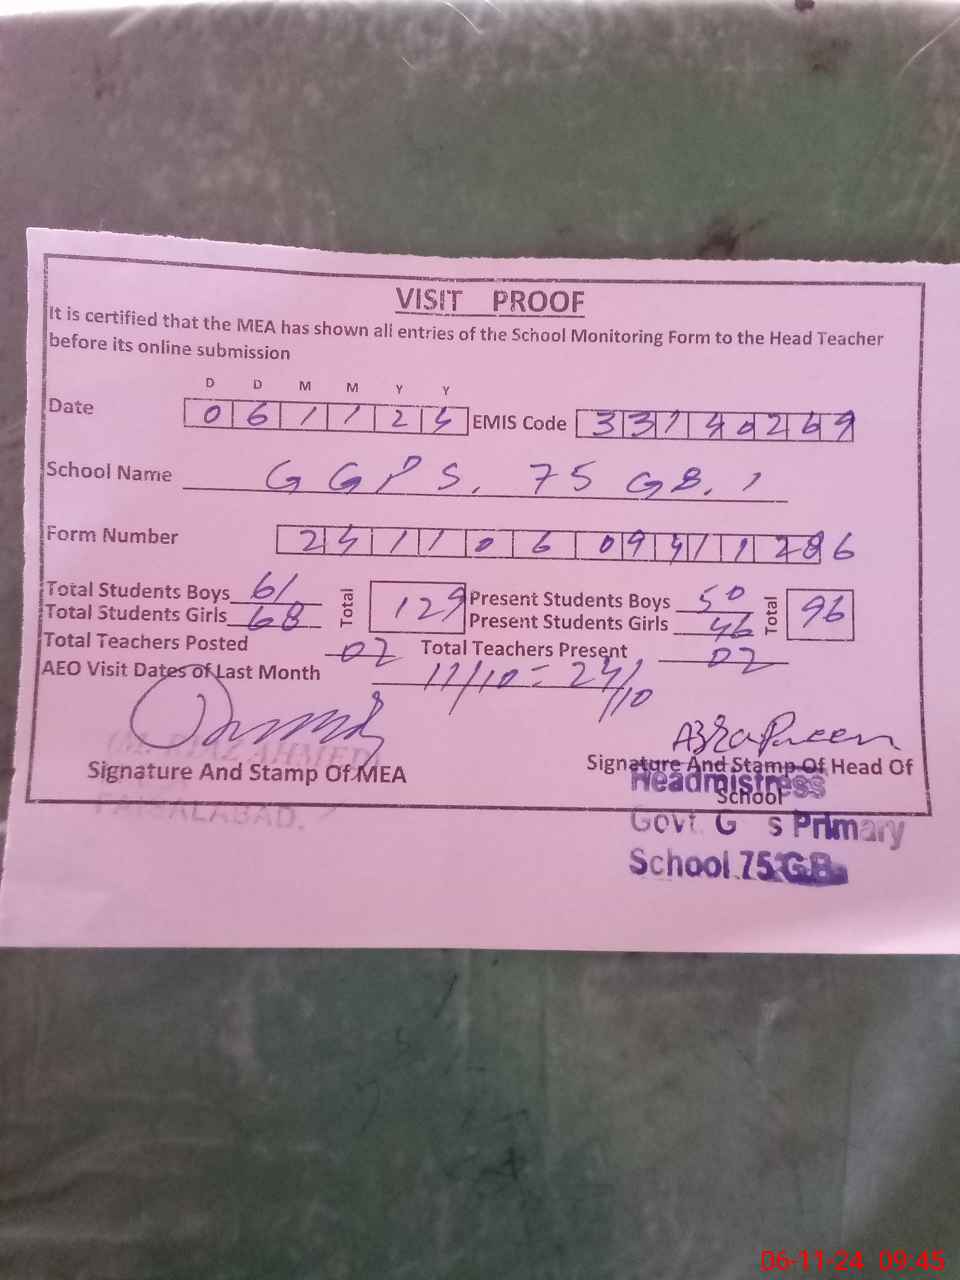 VISIT PROOF
It is certified that the MEA has shown all entries of the School Monitoring Form to the Head Teacher
before its online submission
D D M M Y Y
Date 061124 EMIS Code 33140269
School Name GGPS. 75 GB. 1
Form Number 24110609411286
Total Students Boys 61 Total 129 Present Students Boys 50 Total 96
Total Students Girls 68 Present Students Girls 46
Total Teachers Posted 02 Total Teachers Present 02
AEO Visit Dates of Last Month 11/10 = 24/10
RIAZ AHMED
Signature And Stamp Of MEA
FAISALABAD.
Signature And Stamp Of Head Of
School
Headmistress
Govt. G s Primary
School 75 GB
06-11-24 09:45